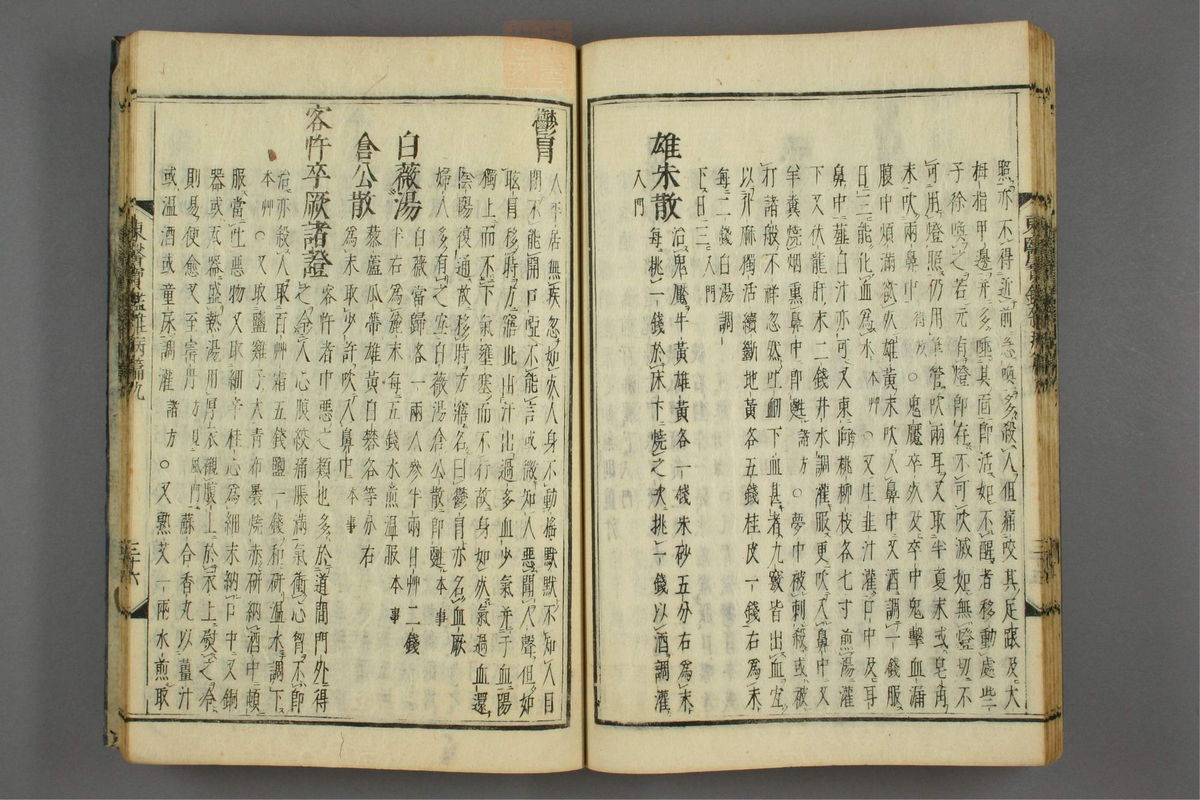 照亦不得近前急喚多殺人但痛咬其足跟及大
拇指甲邊并多唾其面即活如不醒者移動處些
子徐喚之若元有燈即存不可吹滅如無燈切不
可用燈照仍用筆管吹兩耳又取半夏末或皂角
末吹兩鼻中 得效 ○鬼魔卒死及卒中鬼擊血漏
腹中煩滿欲死雄黃末吹入鼻中又酒調一錢服
日三能化血爲水 本艸 ○又生韭汁灌口中及耳
鼻中薤白汁亦可又東向桃柳枝各七寸煎湯灌
下又伏龍肝末二錢井水調灌服更吹入鼻中又
羊糞燒烟熏鼻中即甦 諸方 ○夢中被刺殺或被
打諸般不祥忽然吐衂下血甚者九竅皆出血宜
以升麻獨活續斷地黃各五錢桂皮一錢右爲末
每二錢白湯調
下日三 入門
雄朱散 治鬼魘牛黃雄黃各一錢朱砂五分右爲末
每挑一錢於床下燒之次挑一錢以酒調灌
入門
鬱冒 人平居無疾忽如死人身不動搖默默不知人目
閉不能開口啞不能言或微知人惡聞人聲但如
眩冒移時方寤此由汗出過多血少氣幷于血陽
獨上而不下氣壅塞而不行故身如死氣過血還
陰陽復通故移時方寤名曰鬱冒亦名血厥
婦人多有之宜白薇湯倉公散即甦 本事
白薇湯 白薇當歸各一兩人參半兩甘艸二錢
半右爲麤末每五錢水煎溫服 本事
倉公散 藜蘆瓜蔕雄黃白礬各等分右
爲末取少許吹入鼻中 本事
客忤卒厥諸證 客忤者中惡之類也多於道間門外得
之令人心腹絞痛脹滿氣衝心胷不即
治亦殺人取百艸霜五錢鹽一錢和研溫水調下
本艸 ○又取鹽雞子大青布裹燒赤研納酒中頓
服當吐惡物又取細辛桂心爲細末納口中又銅
器或瓦器盛熱湯用厚衣襯腹上於衣上熨之冷
則易便愈又至寶丹 方見風門 蘇合香丸以薑汁
或溫酒或童尿調灌 諸方 ○又熟艾一兩水煎取
東醫寶鑑雜病篇九
三十六